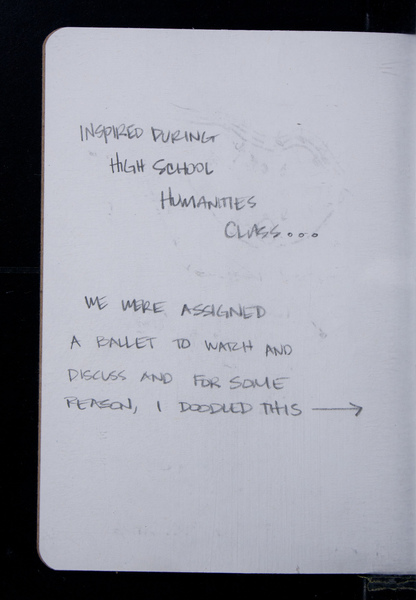 INSPIRED DURING
HIGH SCHOOL
HUMANITIES
CLASS...
WE WERE ASSIGNED
A BALLET TO WATCH AND
DISCUSS AND FOR SOME
REASON, I DOODLED THIS →